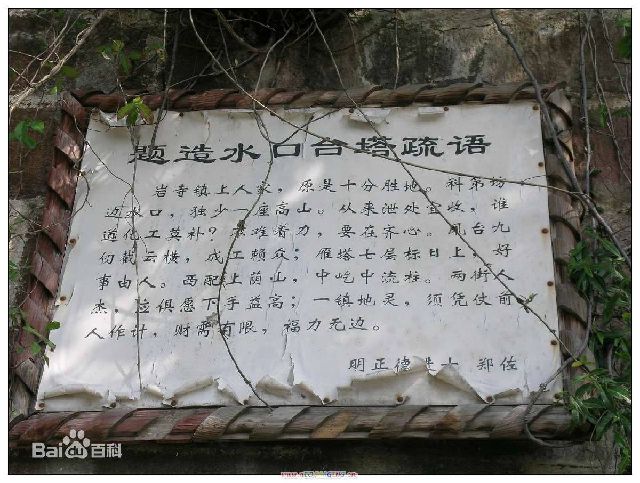 题造水口台塔疏语
岩寺镇上人家，原是十分胜地。科第坊
近水口，独少一座高山。从来泄处宜收，谁
道化工莫补？不难着力，要在齐心。凤台九
仞截云横，成工颇众；雁塔七层标日上，好
事由人。西配上荫山，中屹中流柱。两街人
杰，应俱愿下手益高；一镇地灵，须凭仗前
人作计，财需有限，福力无边。
明正德进士 郑佐
Bai百科